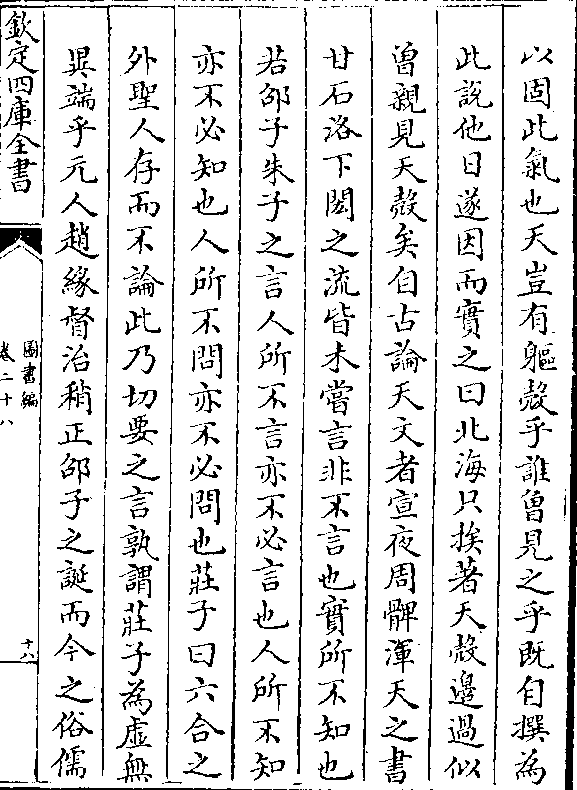 以固此氣也天豈有軀殻乎誰曾見之乎既自撰為
此説他日遂因而實之曰北海只挨著天殻邊過似
曽親見天殻矣自古論天文者宣夜周髀渾天之書
甘石洛下閎之流皆未嘗言非不言也實所不知也
若邵子朱子之言人所不言亦不必言也人所不知
亦不必知也人所不問亦不必問也莊子曰六合之
外聖人存而不論此乃切要之言孰謂莊子為虚無
異端乎元人趙緣督治稍正邵子之誕而今之俗儒
欽定四庫全書
圖書編
卷二十八
十六